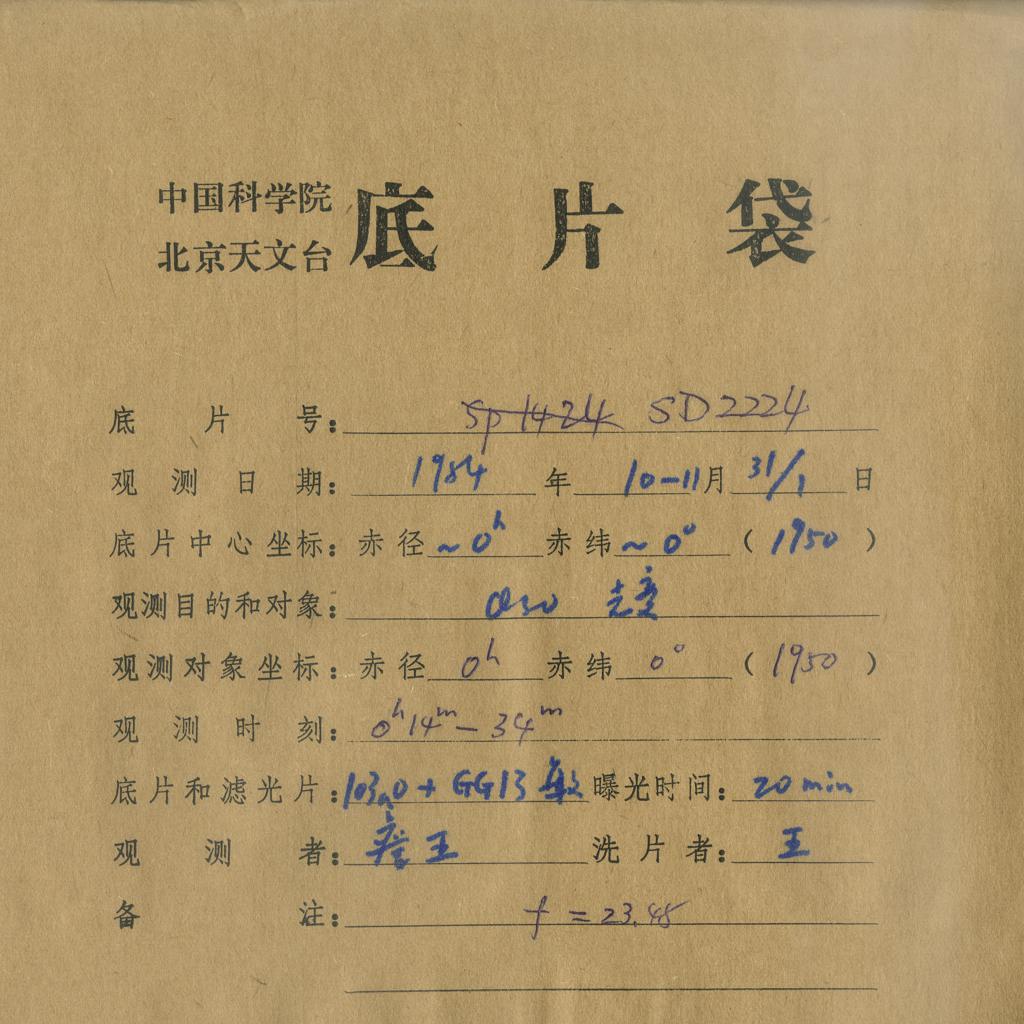 中国科学院
北京天文台
底片袋
底片号：sp1424 SD2224
观测日期：1984年10-11月31/1日
底片中心坐标：赤径~0h赤纬~0°（1950）
观测目的和对象：QSO
观测对象坐标：赤径0h赤纬0°（1950）
观测时刻：0h14m-34m
底片和滤光片：103aO+GG13敏 曝光时间：20min
观测者：詹王 洗片者：王
备注：f=23.45